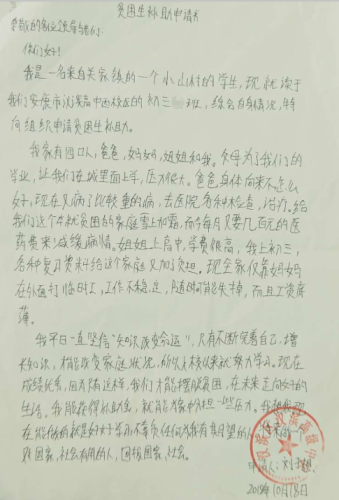 贫困生补助申请书
尊敬的各位领导与老师:
你们好!
我是一名来自关家练的一个小山村的学生,现就读于
我们安康市汉滨高中西校区的初三 班,综合自身情况,特
向组织申请贫困生补助。
我家有四口人,爸爸,妈妈,姐姐和我。父母为了我们的
学业,让我们在城里面上学,压力很大。爸爸身体向来不怎么
好,现在又病了比较重的病,去医院看种种检查,治疗。给
我们这个本就贫困的家庭雪上加霜,而今每月又要几百元的医
药费来减缓病情。姐姐上高中,学费很高,我上初三,
各种复习费料给这个家庭又加了负担。现全家仅靠妈妈
在外面打临时工,工作不稳定,随时可能失掉,而且工资
薄。
我平日一直坚信“知识改变命运”,只有不断完善自己,增
长知识,才能改变家庭状况,所以从来就努力学习。现在
成绩优秀,因为只有这样,我们才能摆脱贫困,在未来走向好的
生活。我能获得补助金,就能为家中分担一些压力。我想我现
在能做的就是好好学习不辜负任何对我有期望的人,
对国家,社会有用的人,回报国家,社会。
申请人:刘
2019年10月13日